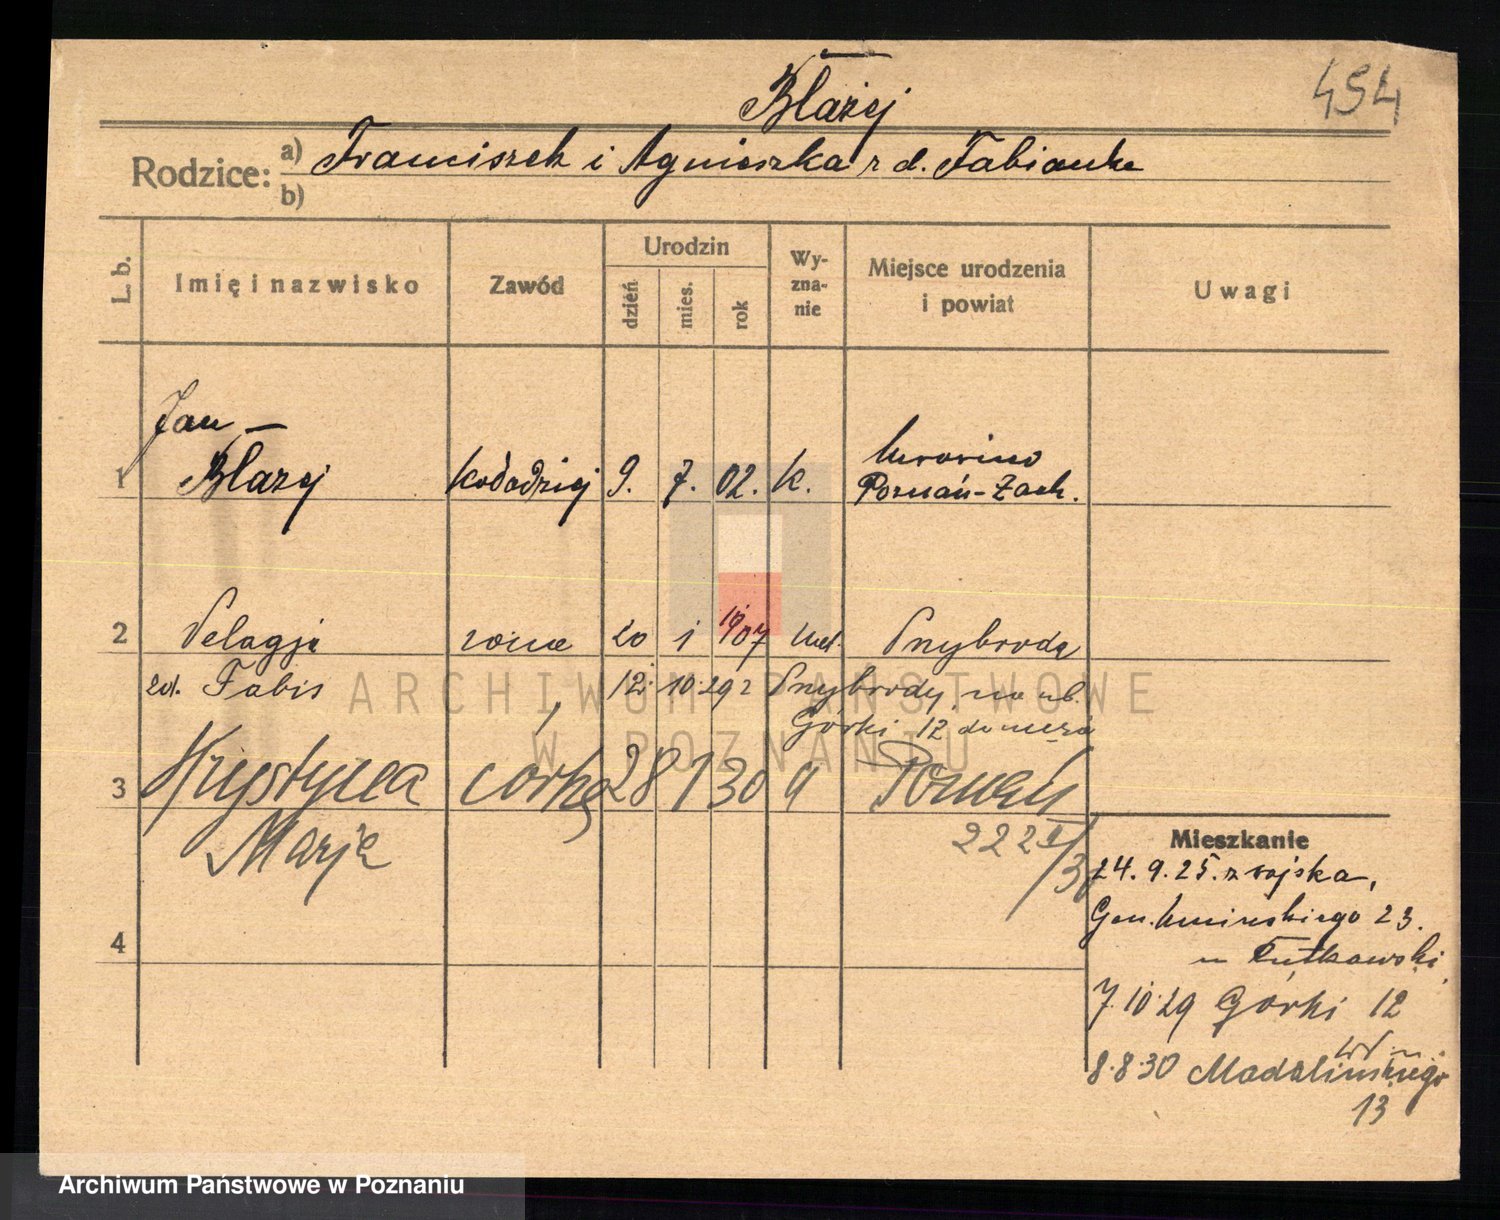 Błażej
454
Rodzice: a) Franciszek i Agnieszka z d. Fabianke
b)
L. b.
Imię i nazwisko
Zawód
Urodzin
dzień
mies.
rok
Wy-
zna-
nie
Miejsce urodzenia
i powiat
Uwagi
Jan –
1 Błażej kołodziej 9. 7. 02. k.
Poznań-Zach.
2 Pelagja 20 1 1907 Przybroda
zd. Fabis 12. 10. 29 z Przybrody, na ul.
Górki 12 do męża
3 Krystyna córka 28 1 30 Poznań
Marja
222
4
Mieszkanie
24. 9. 25. z wojska,
Gen. Umińskiego 23.
u
7.10.29 Górki 12
8.8.30 Madalińskiego
13
ARCHIWUM PAŃSTWOWE
W POZNANIU
Archiwum Państwowe w Poznaniu